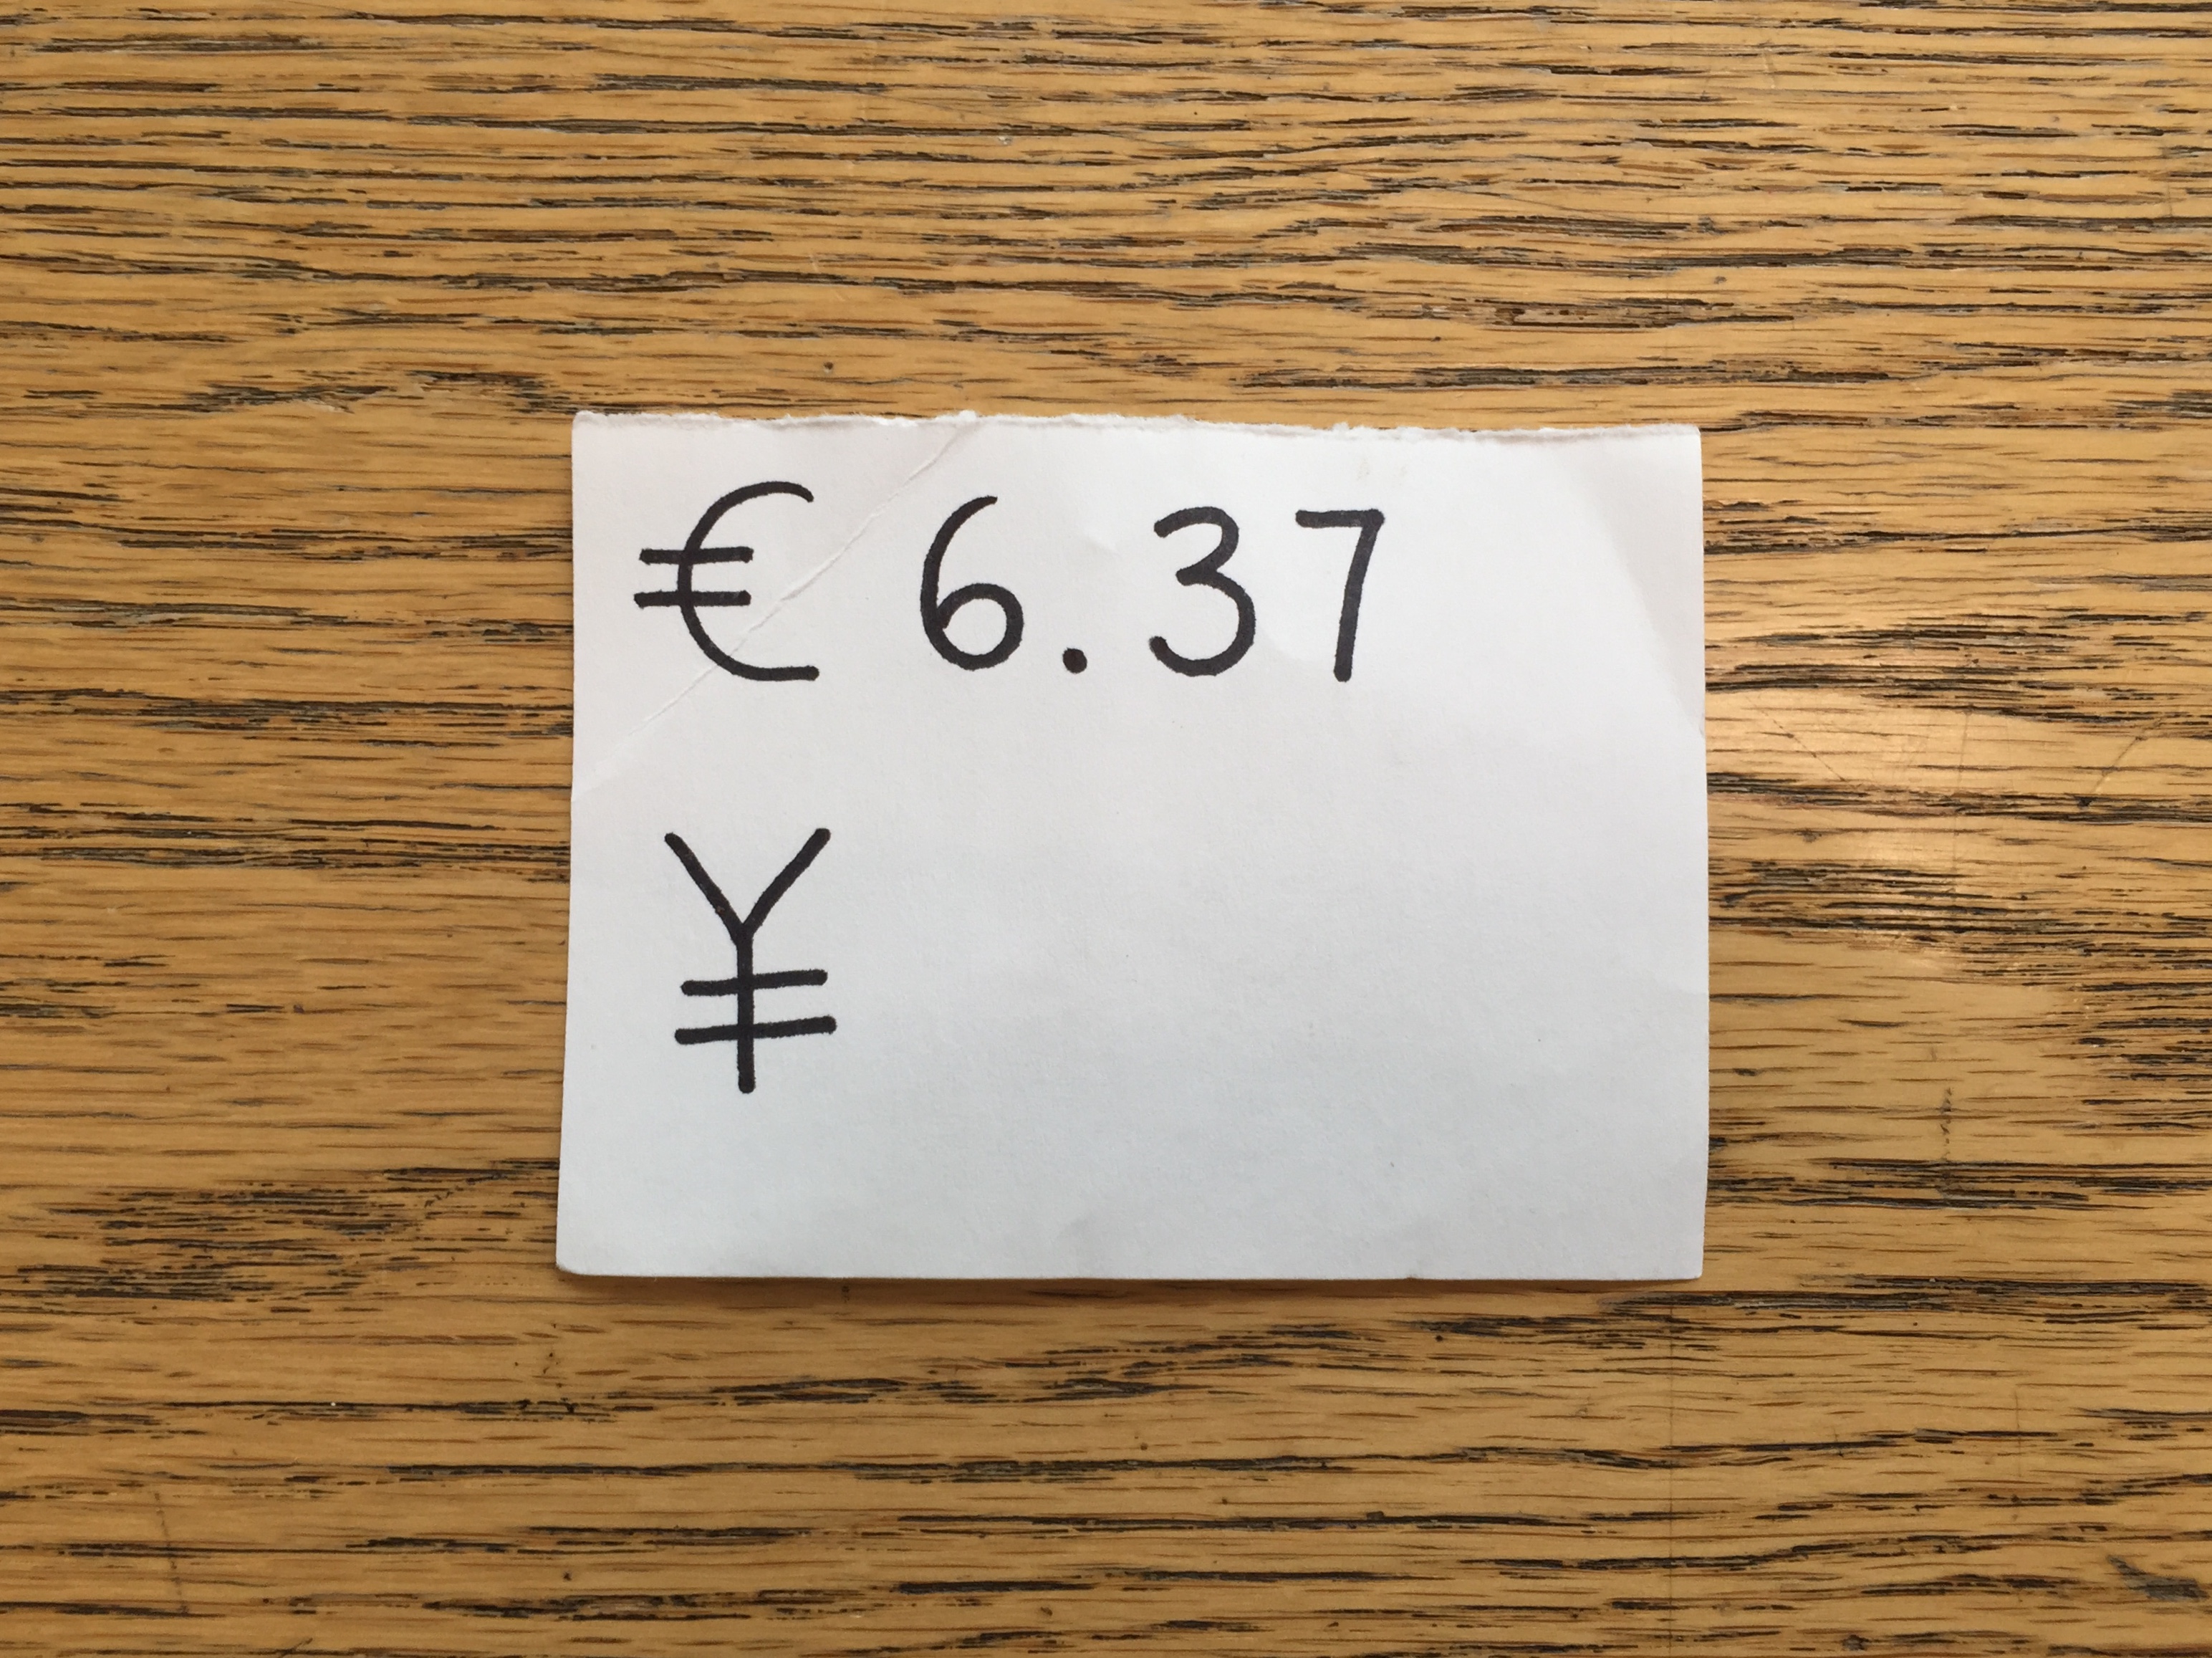 € 6.37
¥